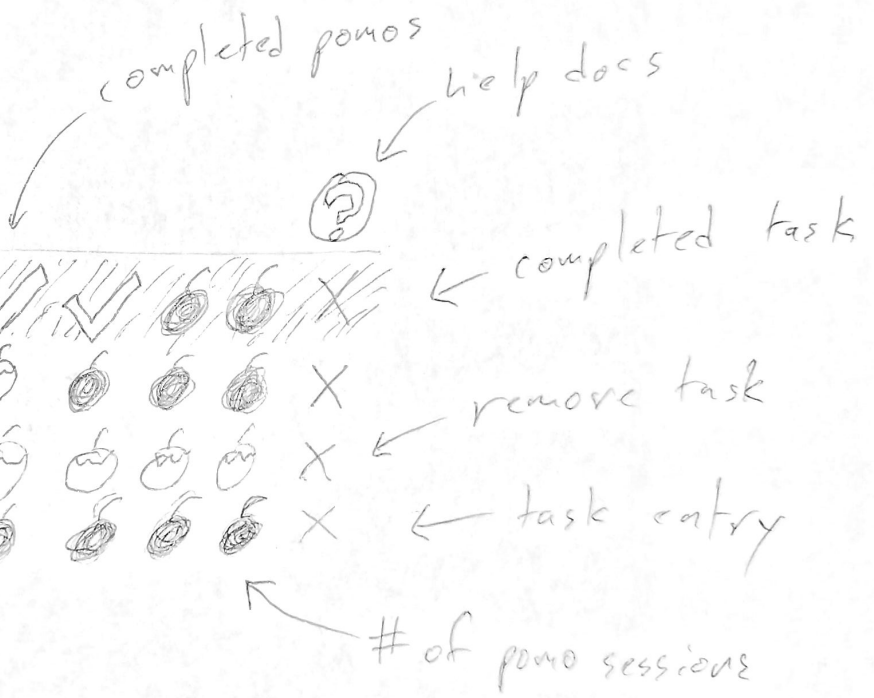 completed pomos
help docs
?
completed task
X
X
remove task
X
X
task entry
# of pomo sessions